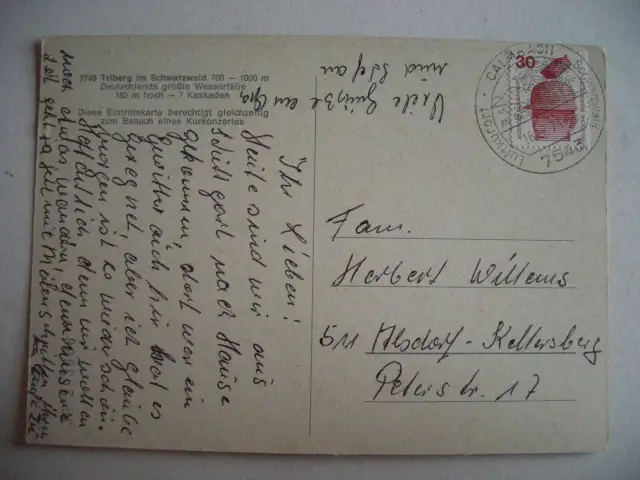 7740 Triberg im Schwarzwald 700 – 1000 m
Deutschlands größte Wasserfälle
162 m hoch – 7 Kaskaden
Diese Eintrittskarte berechtigt gleichzeitig
zum Besuch eines Kurkonzertes
Ihr Lieben!
Heute sind wir aus
Stuttgart nach Hause
gekommen, dort war ein
Gewitter auch hier hat es
geregnet, aber ich glaube
morgen ist es wieder schön
hoffentlich denn wir wollen
noch etwas wandern,
Viele Grüße an
und Stefan
CALMBACH Schwarzwald
Luftkurort
754
30
Fam.
Herbert Willems
511 Alsdorf-Kellersberg
Peterstr. 17